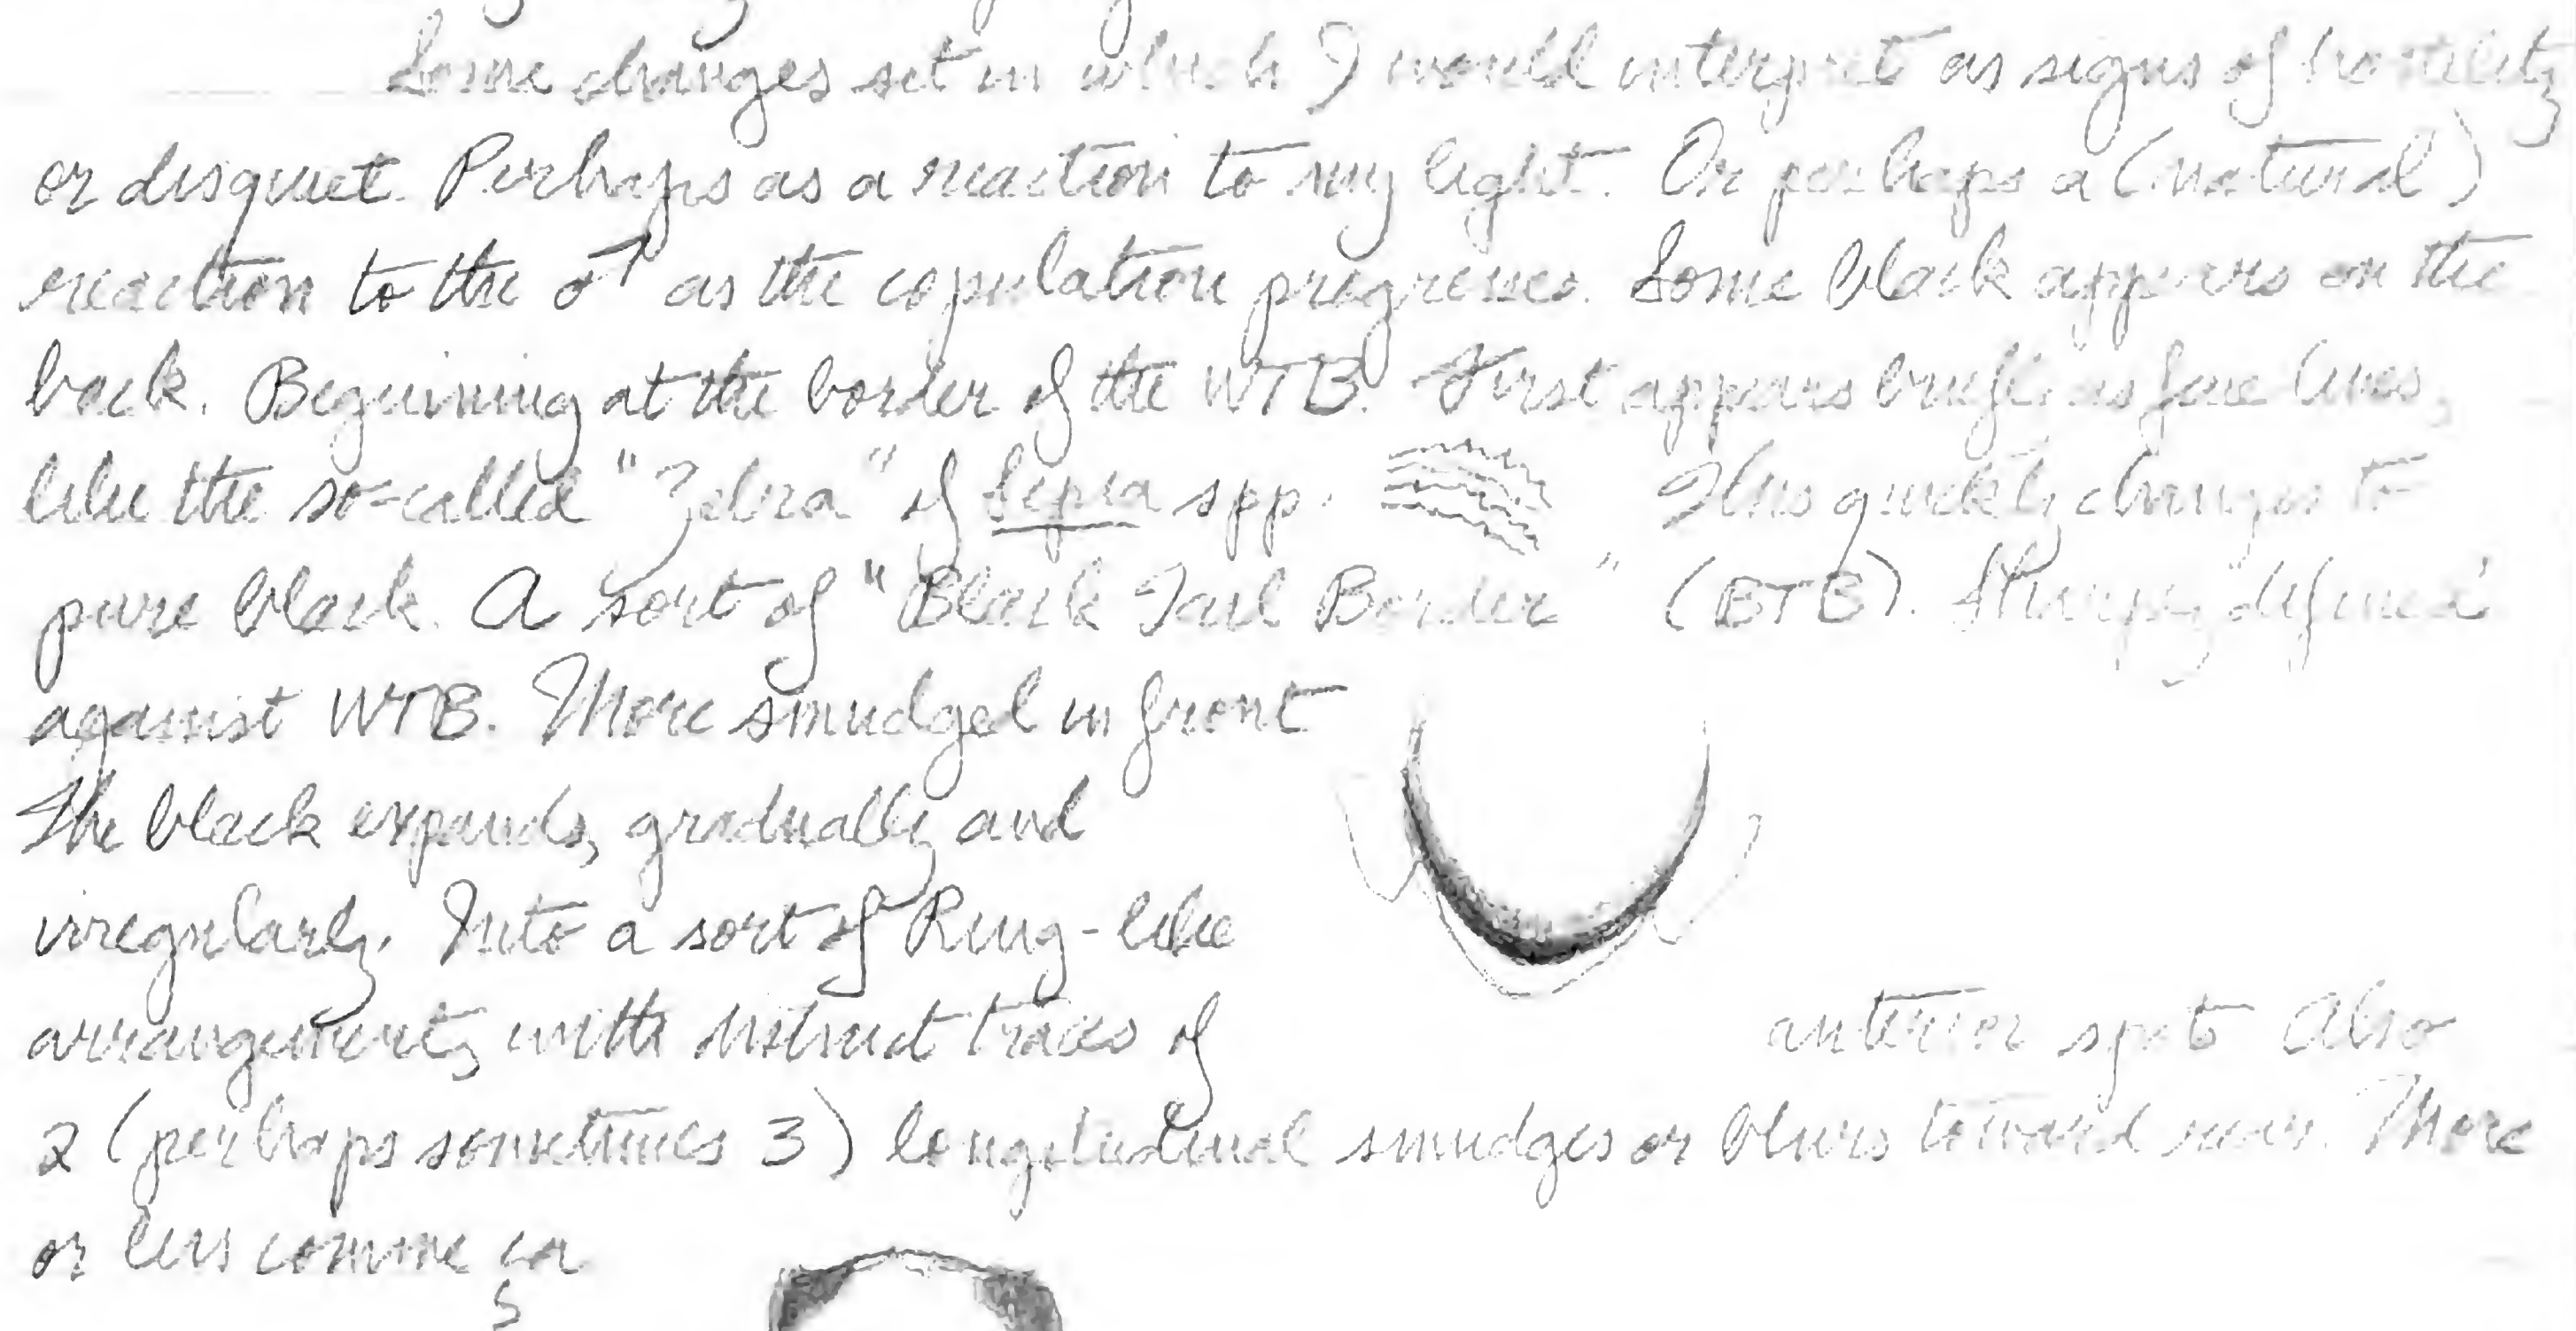 Some changes set in which I would interpret as signs of hostility
or disquiet. Perhaps as a reaction to my light. Or perhaps a (natural)
reaction to the ♂ as the copulation progresses. Some black appears on the
back. Beginning at the border of the WTB. First appears briefly as fine lines,
like the so-called "Zebra" of Sepia spp. This quickly changes to
pure black. A sort of "Black Tail Border" (BTB). Sharply defined
against WTB. More smudged in front
The black expands, gradually and
irregularly. Into a sort of Ring-like
arrangement, with distinct traces of anterior spots Also
2 (perhaps sometimes 3) longitudinal smudges or blurs toward rear. More
or less comme ça